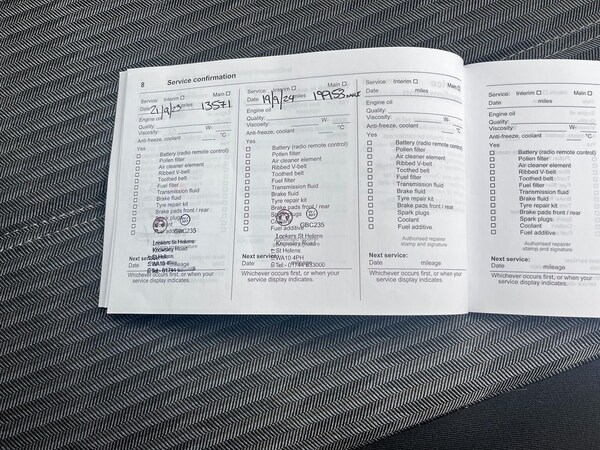 8 Service confirmation
Service: Interim Main
Date 21/9/23 miles 13571
Engine oil
Quality:
Viscosity: W-
Anti-freeze, coolant °C
Yes
Battery (radio remote control)
Pollen filter
Air cleaner element
Ribbed V-belt
Toothed belt
Fuel filter
Transmission fluid
Brake fluid
Tyre repair kit
Brake pads front / rear
Spark plugs
GBC235
Fuel additive
Lookers St Helens
Knowsley Road
St Helens
WA10 4PH
Tel - 01744
Next service:
Date mileage
Whichever occurs first, or when your
service display indicates.
Service: Interim Main
Date 19/9/24 miles 19953
Engine oil
Quality:
Viscosity: W-
Anti-freeze, coolant °C
Yes
Battery (radio remote control)
Pollen filter
Air cleaner element
Ribbed V-belt
Toothed belt
Fuel filter
Transmission fluid
Brake fluid
Tyre repair kit
Brake pads front / rear
Spark plugs
Coolant GBC235
Fuel additive
Lookers St Helens
Knowsley Road
St Helens
WA10 4PH
Tel - 01744 633000
Next service:
Date mileage
Whichever occurs first, or when your
service display indicates.
Service: Interim Main
Date miles
Engine oil
Quality:
Viscosity: W-
Anti-freeze, coolant °C
Yes
Battery (radio remote control)
Pollen filter
Air cleaner element
Ribbed V-belt
Toothed belt
Fuel filter
Transmission fluid
Brake fluid
Tyre repair kit
Brake pads front / rear
Spark plugs
Coolant
Fuel additive
Authorised repairer
stamp and signature
Next service:
Date mileage
Whichever occurs first, or when your
service display indicates.
Service: Interim Main
Date miles
Engine oil
Quality:
Viscosity: W-
Anti-freeze, coolant °C
Yes
Battery (radio remote control)
Pollen filter
Air cleaner element
Ribbed V-belt
Toothed belt
Fuel filter
Transmission fluid
Brake fluid
Tyre repair kit
Brake pads front / rear
Spark plugs
Coolant
Fuel additive
Authorised repairer
stamp and signature
Next service:
Date mileage
Whichever occurs first, or when your
service display indicates.